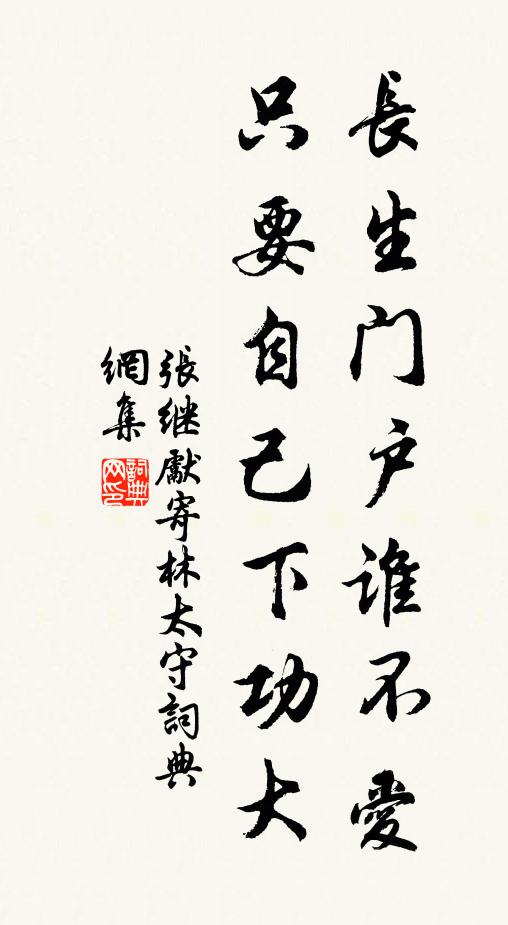 長生门户谁不愛
只要自己下功大
張继獻寄林太守詞典
網集
詞典网印